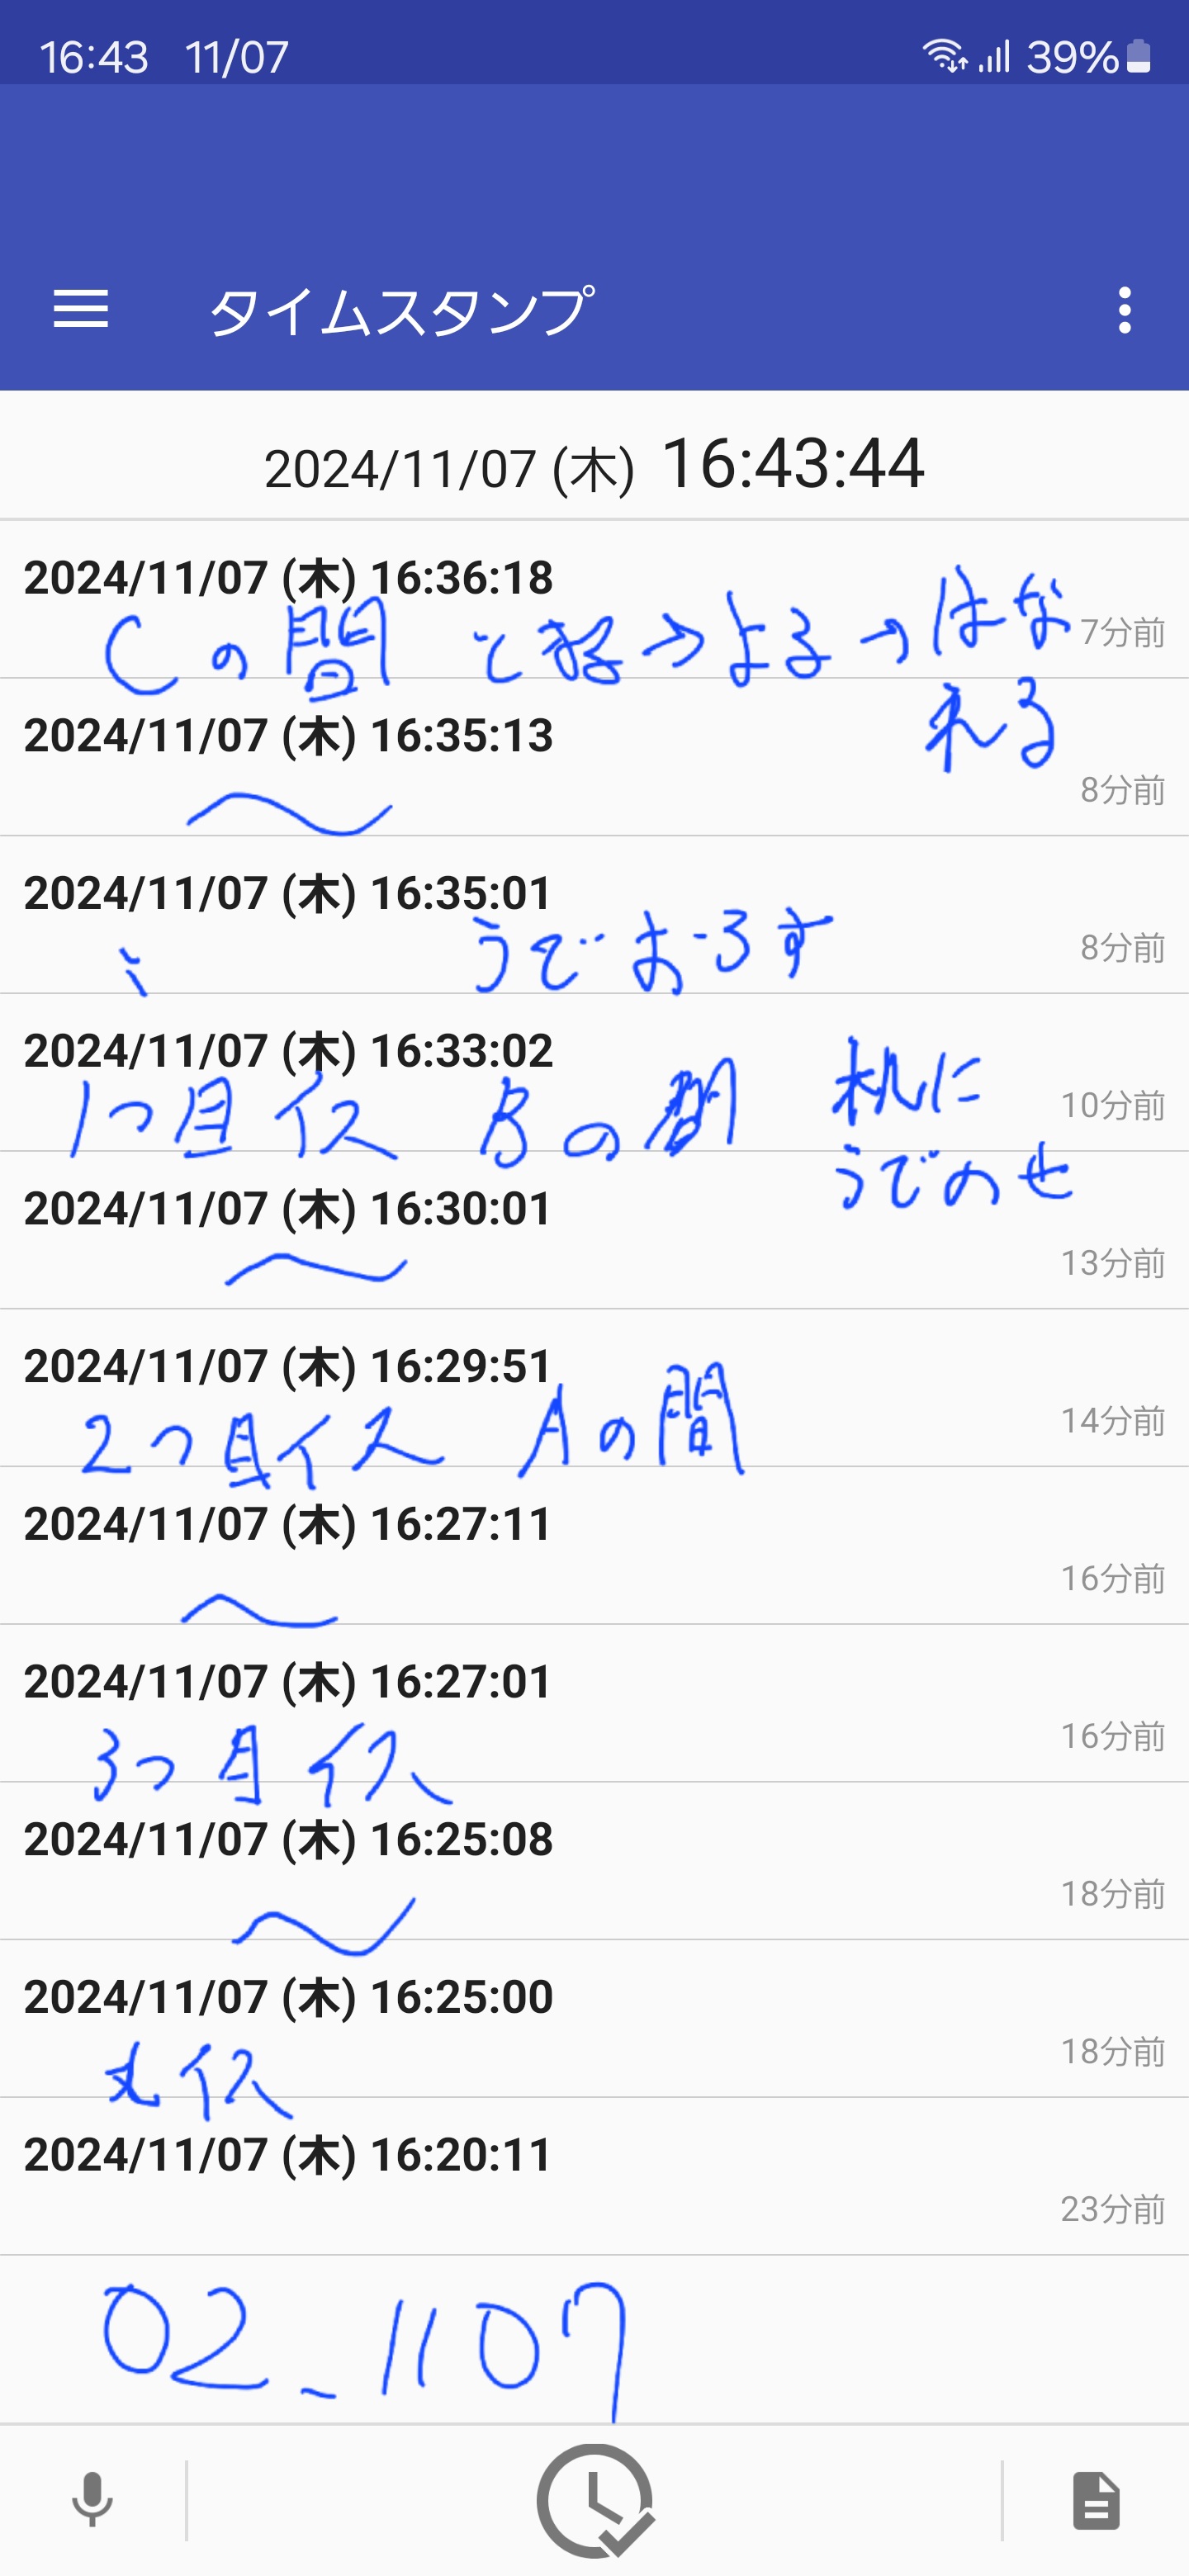 16:43 11/07 39%
タイムスタンプ
2024/11/07 (木) 16:43:44
2024/11/07 (木) 16:36:18
Cの間 よる→はな
7分前
れる
2024/11/07 (木) 16:35:13
8分前
〜
2024/11/07 (木) 16:35:01
うでおろす
8分前
2024/11/07 (木) 16:33:02
1つ目イス Bの間 机に
10分前
うでのせ
2024/11/07 (木) 16:30:01
13分前
〜
2024/11/07 (木) 16:29:51
2つ目イス Aの間
14分前
2024/11/07 (木) 16:27:11
16分前
〜
2024/11/07 (木) 16:27:01
3つ目イス
16分前
2024/11/07 (木) 16:25:08
18分前
〜
2024/11/07 (木) 16:25:00
丸イス
18分前
2024/11/07 (木) 16:20:11
23分前
02_1107